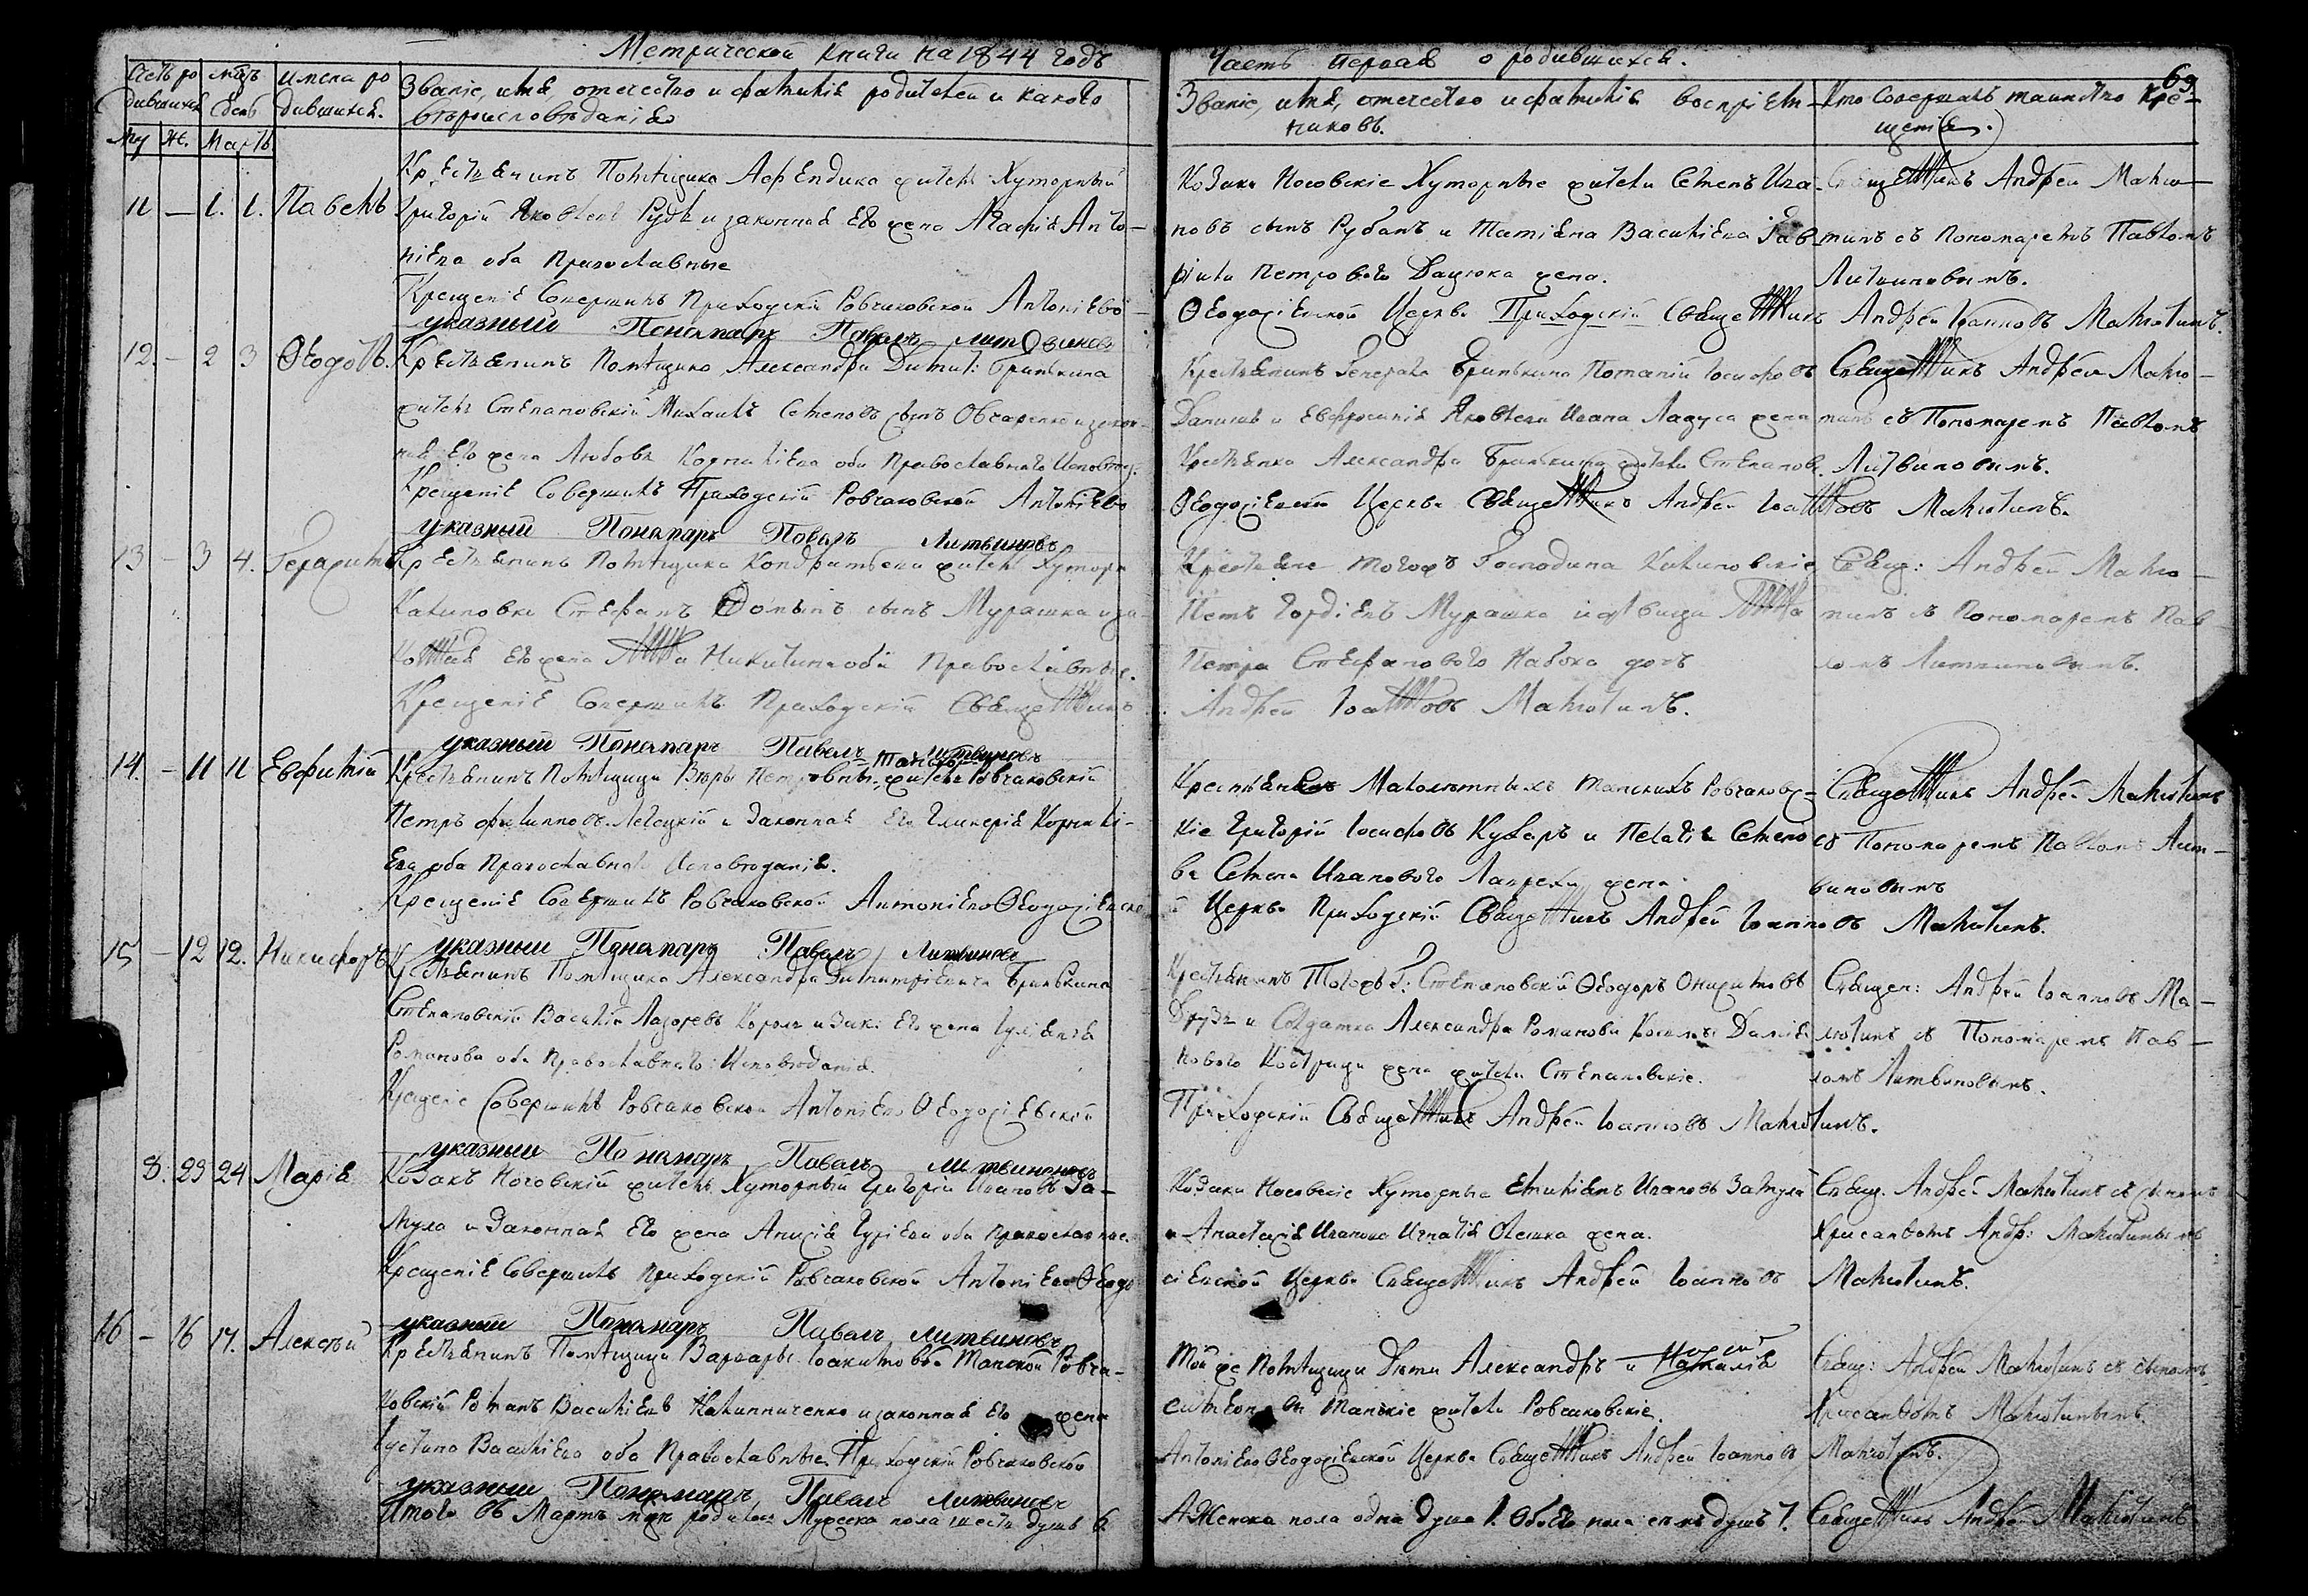 Метрической книги на 1844 годъ
Часть первая о родившихся.
69
Счетъ ро
дившихся
му ж.
мцъ
день
Мартъ
имена ро
дившихся.
Званіе, имя отчество и фамилія родителей и какого
вѣроисповѣданія
Званіе, имя, отчество и фамилія воспріем-
никовъ.
Кто совершалъ таинство кре-
щенія.
11 — 1. 1. Павелъ
Крестьянинъ Помѣщика Афендика житель Хуторный
Григорій Яковлевъ Рудь и законная его жена Агафія Анто-
ніева оба Православные
Крещеніе Совершилъ Приходскій Ровчаковской Антоніево
указный Пономарь Павелъ Литвиновъ
Козаки Носовскіе Хуторные жители Семенъ Ива-
новъ сынъ Рубанъ и Татіяна Василіева Гав-
ріила Петрового Дацюка жена.
Ѳеодосіевской Церкви Приходскій Священникъ Андрей Іоанновъ Малютинъ.
Священникъ Андрей Малю-
тинъ съ Пономаремъ Павломъ
Литвиновымъ.
12. — 2 3 Ѳеодотъ.
Крестьянинъ Помѣщика Александра Димит: Бринкина
житель Степановскій Михаилъ Семеновъ сынъ Овчаренко и закон-
ная его жена Любовь Корниліева оба Православнаго Исповѣд:
Крещеніе Совершилъ Приходскій Ровчаковской Антоніево
указный Пономарь Павелъ Литвиновъ
Крестьянинъ Генерала Бринкина Іосифовъ
Даничъ и Евфросинія Яковлева Ивана жена
Крестьянка Александра Бринкина жители Степанов.
Ѳеодосіевской Церкви Священникъ Андрей Іоанновъ Малютинъ.
Священникъ Андрей Малю-
тинъ съ Пономаремъ Павломъ
Литвиновымъ.
13 — 3 4. Герасимъ
Крестьянинъ Помѣщика житель Хутора
Калиновки Стефанъ сынъ Мурашка и за-
конная его жена Анна Никитина оба Православные.
Крещеніе Совершилъ Приходскій Священникъ
указный Пономарь Павелъ Литвиновъ
Крестьяне тогожъ Господина Калиновскіе
Гордіевъ Мурашка и дѣвица Анна
Петра Стефанового Набока дочь
Андрей Іоанновъ Малютинъ.
Свящ: Андрей Малю-
тинъ съ Пономаремъ Пав-
ломъ Литвиновымъ.
14. — 11 11 Евфимій
Крестьянинъ Помѣщицы Вѣры Петровны Танской житель Ровчаковскій
Петръ Филипповъ и Законная его Гликерія Корнилі-
ева оба Православнаго Исповѣданія.
Крещеніе Совершилъ Ровчаковской Антоніево Ѳеодосіевско
указный Пономарь Павелъ Литвиновъ
Крестьяне Малолѣтныхъ Танскихъ Ровчаковс-
кіе Григорій Іосифовъ Кухарь и Пелагія Семено
ва Семена Иванового жена.
й Церкви Приходскій Священникъ Андрей Іоанновъ Малютинъ.
Священникъ Андрей Малютинъ
съ Пономаремъ Павломъ Лит-
виновымъ
15 — 12 12. Никифоръ
Крестьянинъ Помѣщика Александра Димитріевича Бринкина
Степановскій Василій Лазоревъ Король и Зак: его жена
Романова оба Православнаго Исповѣданія.
Крещеніе Совершилъ Ровчаковской Антоніево Ѳеодосіевской
указный Пономарь Павелъ Литвиновъ
Крестьянинъ Тогожъ Г: Степановскій Ѳеодоръ
и Солдатка Александра Романова
жена жители Степановскіе.
Приходскій Священникъ Андрей Іоанновъ Малютинъ.
Священ: Андрей Іоанновъ Ма-
лютинъ съ Пономаремъ Пав-
ломъ Литвиновымъ.
8. 23 24 Марія
Козакъ Носовскій житель Хуторный Григорій Ивановъ За-
мула и Законная его жена Анисія Гуріева оба православные
Крещеніе Совершилъ Приходскій Ровчаковской Антоніево Ѳеодо
указный Пономарь Павелъ Литвиновъ
Козаки Носовскіе Хуторные Емиліанъ Ивановъ Замула
и Анастасія Иванова Игнатія жена.
сіевской Церкви Священникъ Андрей Іоанновъ Малютинъ.
Свящ. Андрей Малютинъ съ сыномъ
Хрисанфомъ Андр: Малютинымъ
16 — 16 17. Алексѣй
Крестьянинъ Помѣщицы Варвары Іоакимовны Танской Ровча-
ковскій Романъ Василіевъ и законная его жена
Іустина Василіева оба Православные. Приходскій Ровчаковской
указный Пономарь Павелъ Литвиновъ
Той же Помѣщицы Дѣти Александръ и
Танскіе жители Ровчаковскіе.
Антоніево Ѳеодосіевской Церкви Священникъ Андрей Іоанновъ Малютинъ.
Свящ: Андрей Малютинъ съ сыномъ
Хрисанфомъ Малютинымъ.
Итого въ Мартѣ мцѣ родилось Мужеска пола шесть душъ 6.
А Женска пола одна душа 1. Обоего пола семь душъ 7. Священникъ Андрей Малютинъ